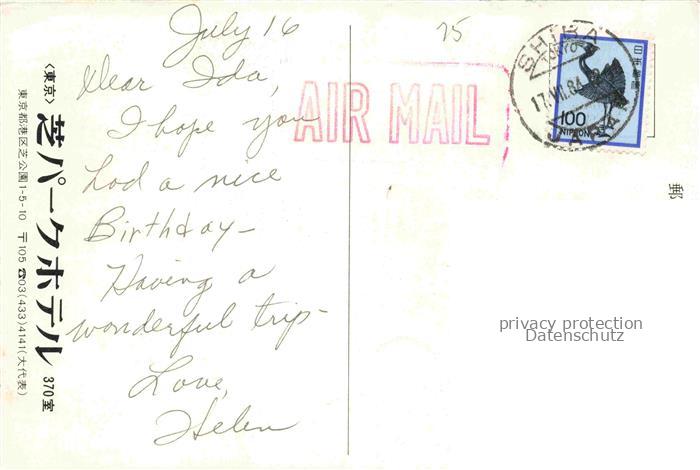 July 16
Dear Ida,
I hope you
had a nice
Birthday—
Having a
wonderful trip—
Love,
Helen
75
AIR MAIL
SHIBA
TOKYO
17.VII.84
JAPAN
日本郵便
100
NIPPON
郵
privacy protection
Datenschutz
〈東京〉芝パークホテル 370室
東京都港区芝公園1-5-10 〒105 ☎03(433)4141(大代表)